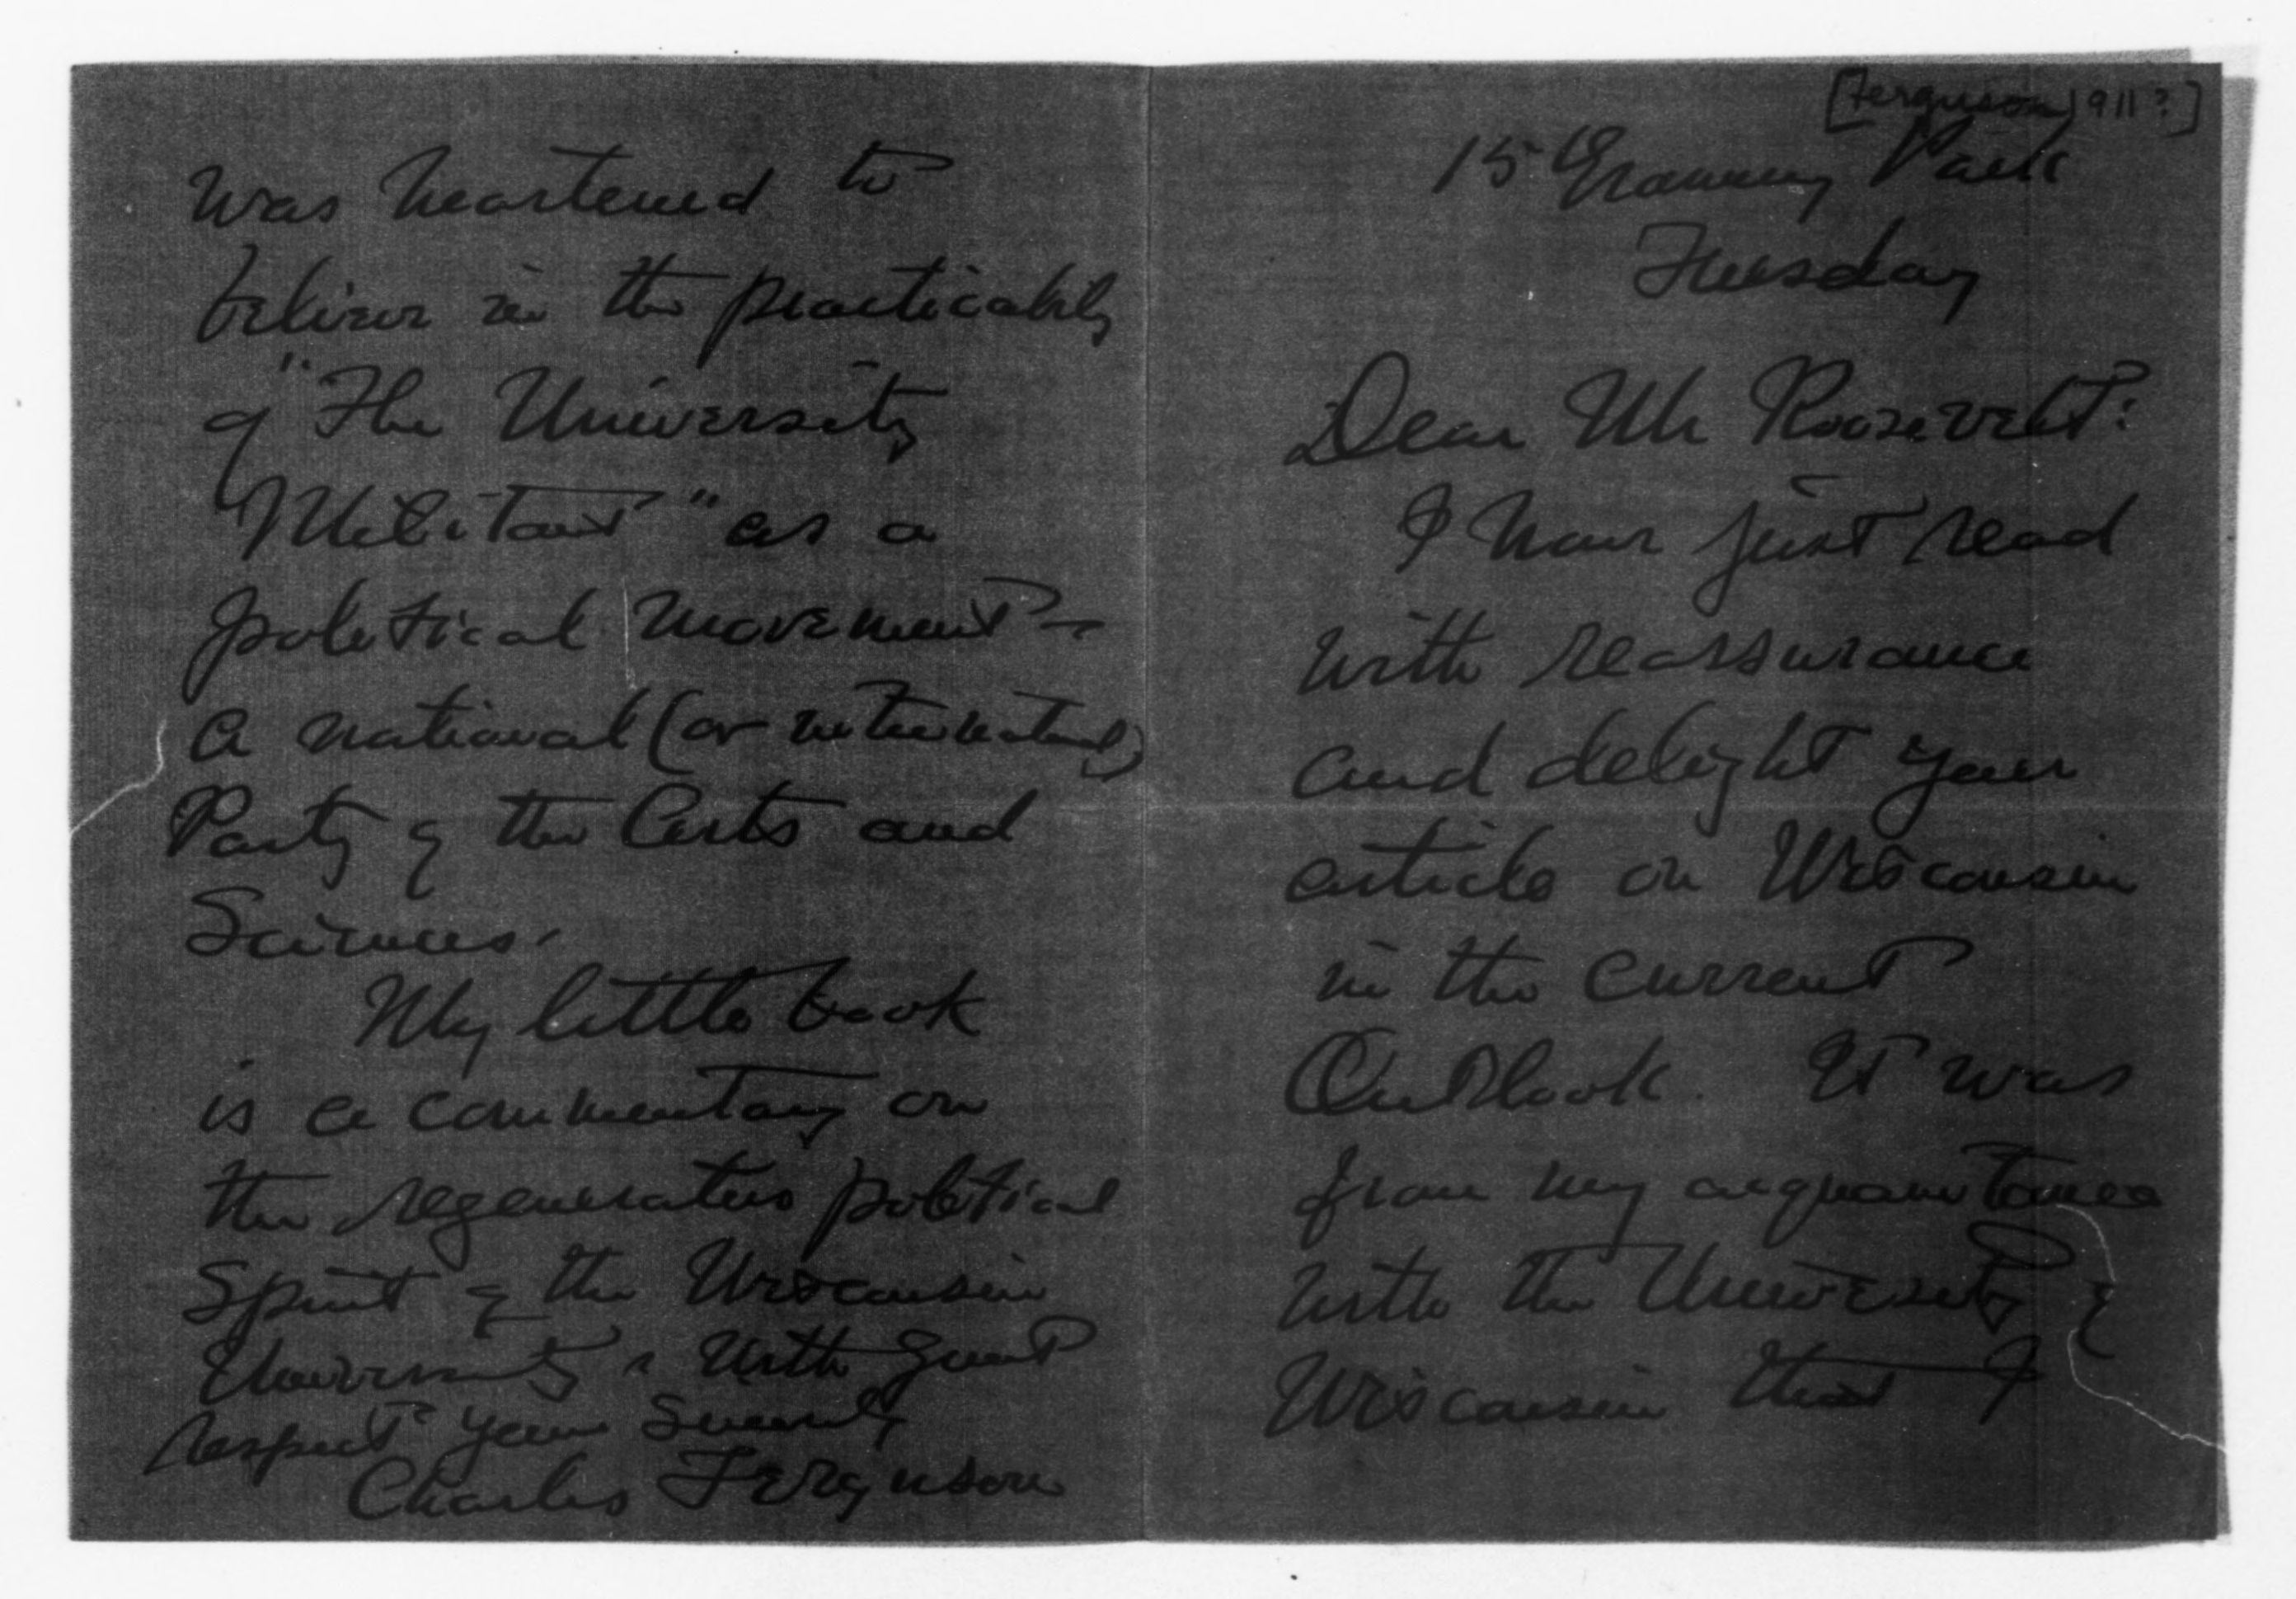 [Ferguson 1911?]
15 Gramercy Park
Tuesday
Dear Mr Roosevelt:
I have just read
with reassurance
and delight your
article on Wisconsin
in the current
Outlook. It was
from my acquaintance
with the University &
Wisconsin that I
was heartened to
believe in the practicability
of "The University
Militant" as a
political movement –
a national (or international)
Party of the Arts and
Sciences.
My little book
is a commentary on
the regenerative political
spirit of the Wisconsin
University. With great
respect yours sincerely
Charles Ferguson